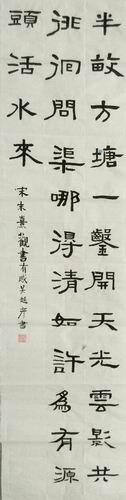 半畝方塘一鑿開天光雲影共
徘徊問渠哪得清如許為有源
頭活水來
宋朱熹觀書有感吳越彥書